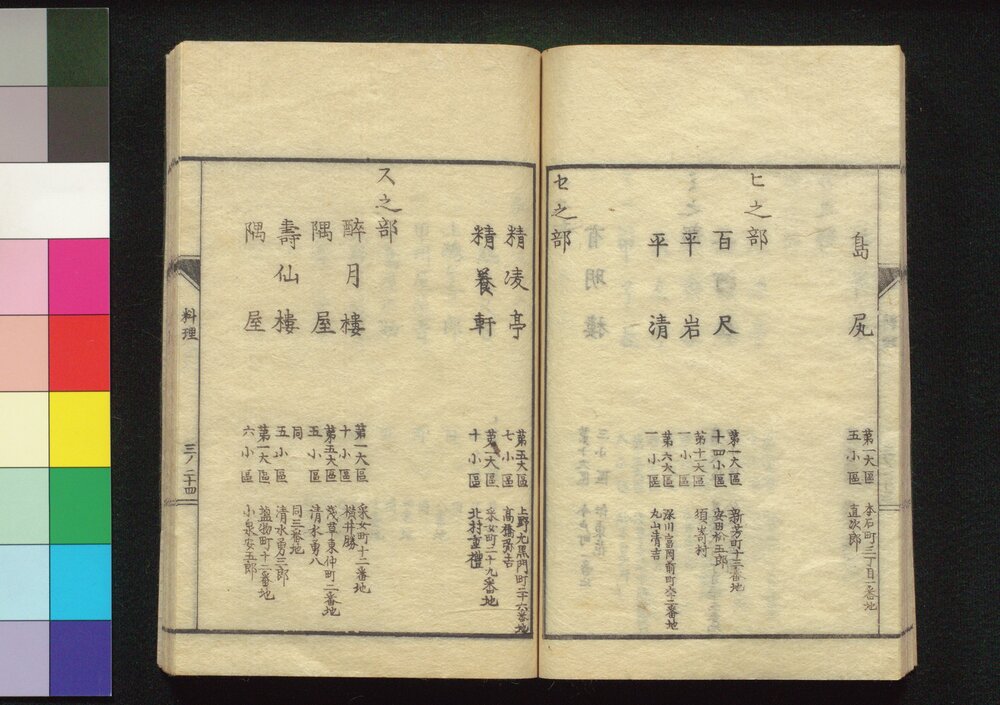 島尻
第一大區
五小區
本石町三丁目二番地
直次郎
ヒ之部
百尺
第一大區
十四小區
新芳町十三番地
安田松五郎
平岩
第十一大區
一小區
須崎村
平清
第六大區
一小區
深川富岡前町六十二番地
丸山清吉
セ之部
精凌亭
第五大區
七小區
上野元黒門町二十六番地
高橋弥吉
精養軒
第一大區
十小區
采女町二十九番地
北村重禮
ス之部
醉月樓
第一大區
十小區
采女町十二番地
横井勝
隅屋
第五大區
五小區
淺草東仲町二番地
清水勇八
壽仙樓
同
五小區
同三番地
清水勇三郎
隅屋
第一大區
六小區
小泉安五郎
料理
三ノ二十四